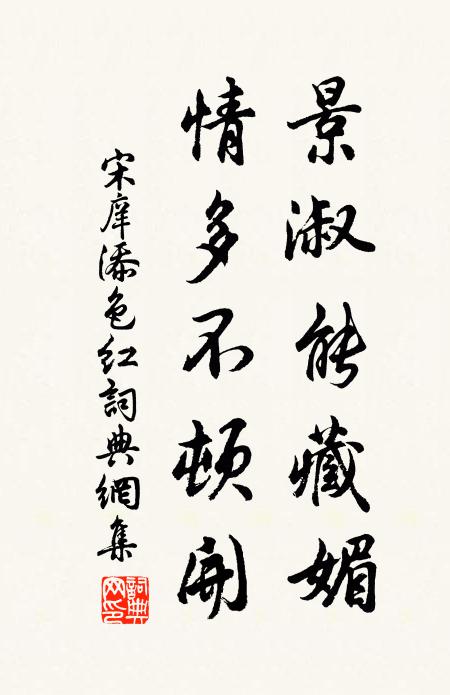 景淑能藏媚
情多不頓開
宋庠添色红詞典網集
詞典网印